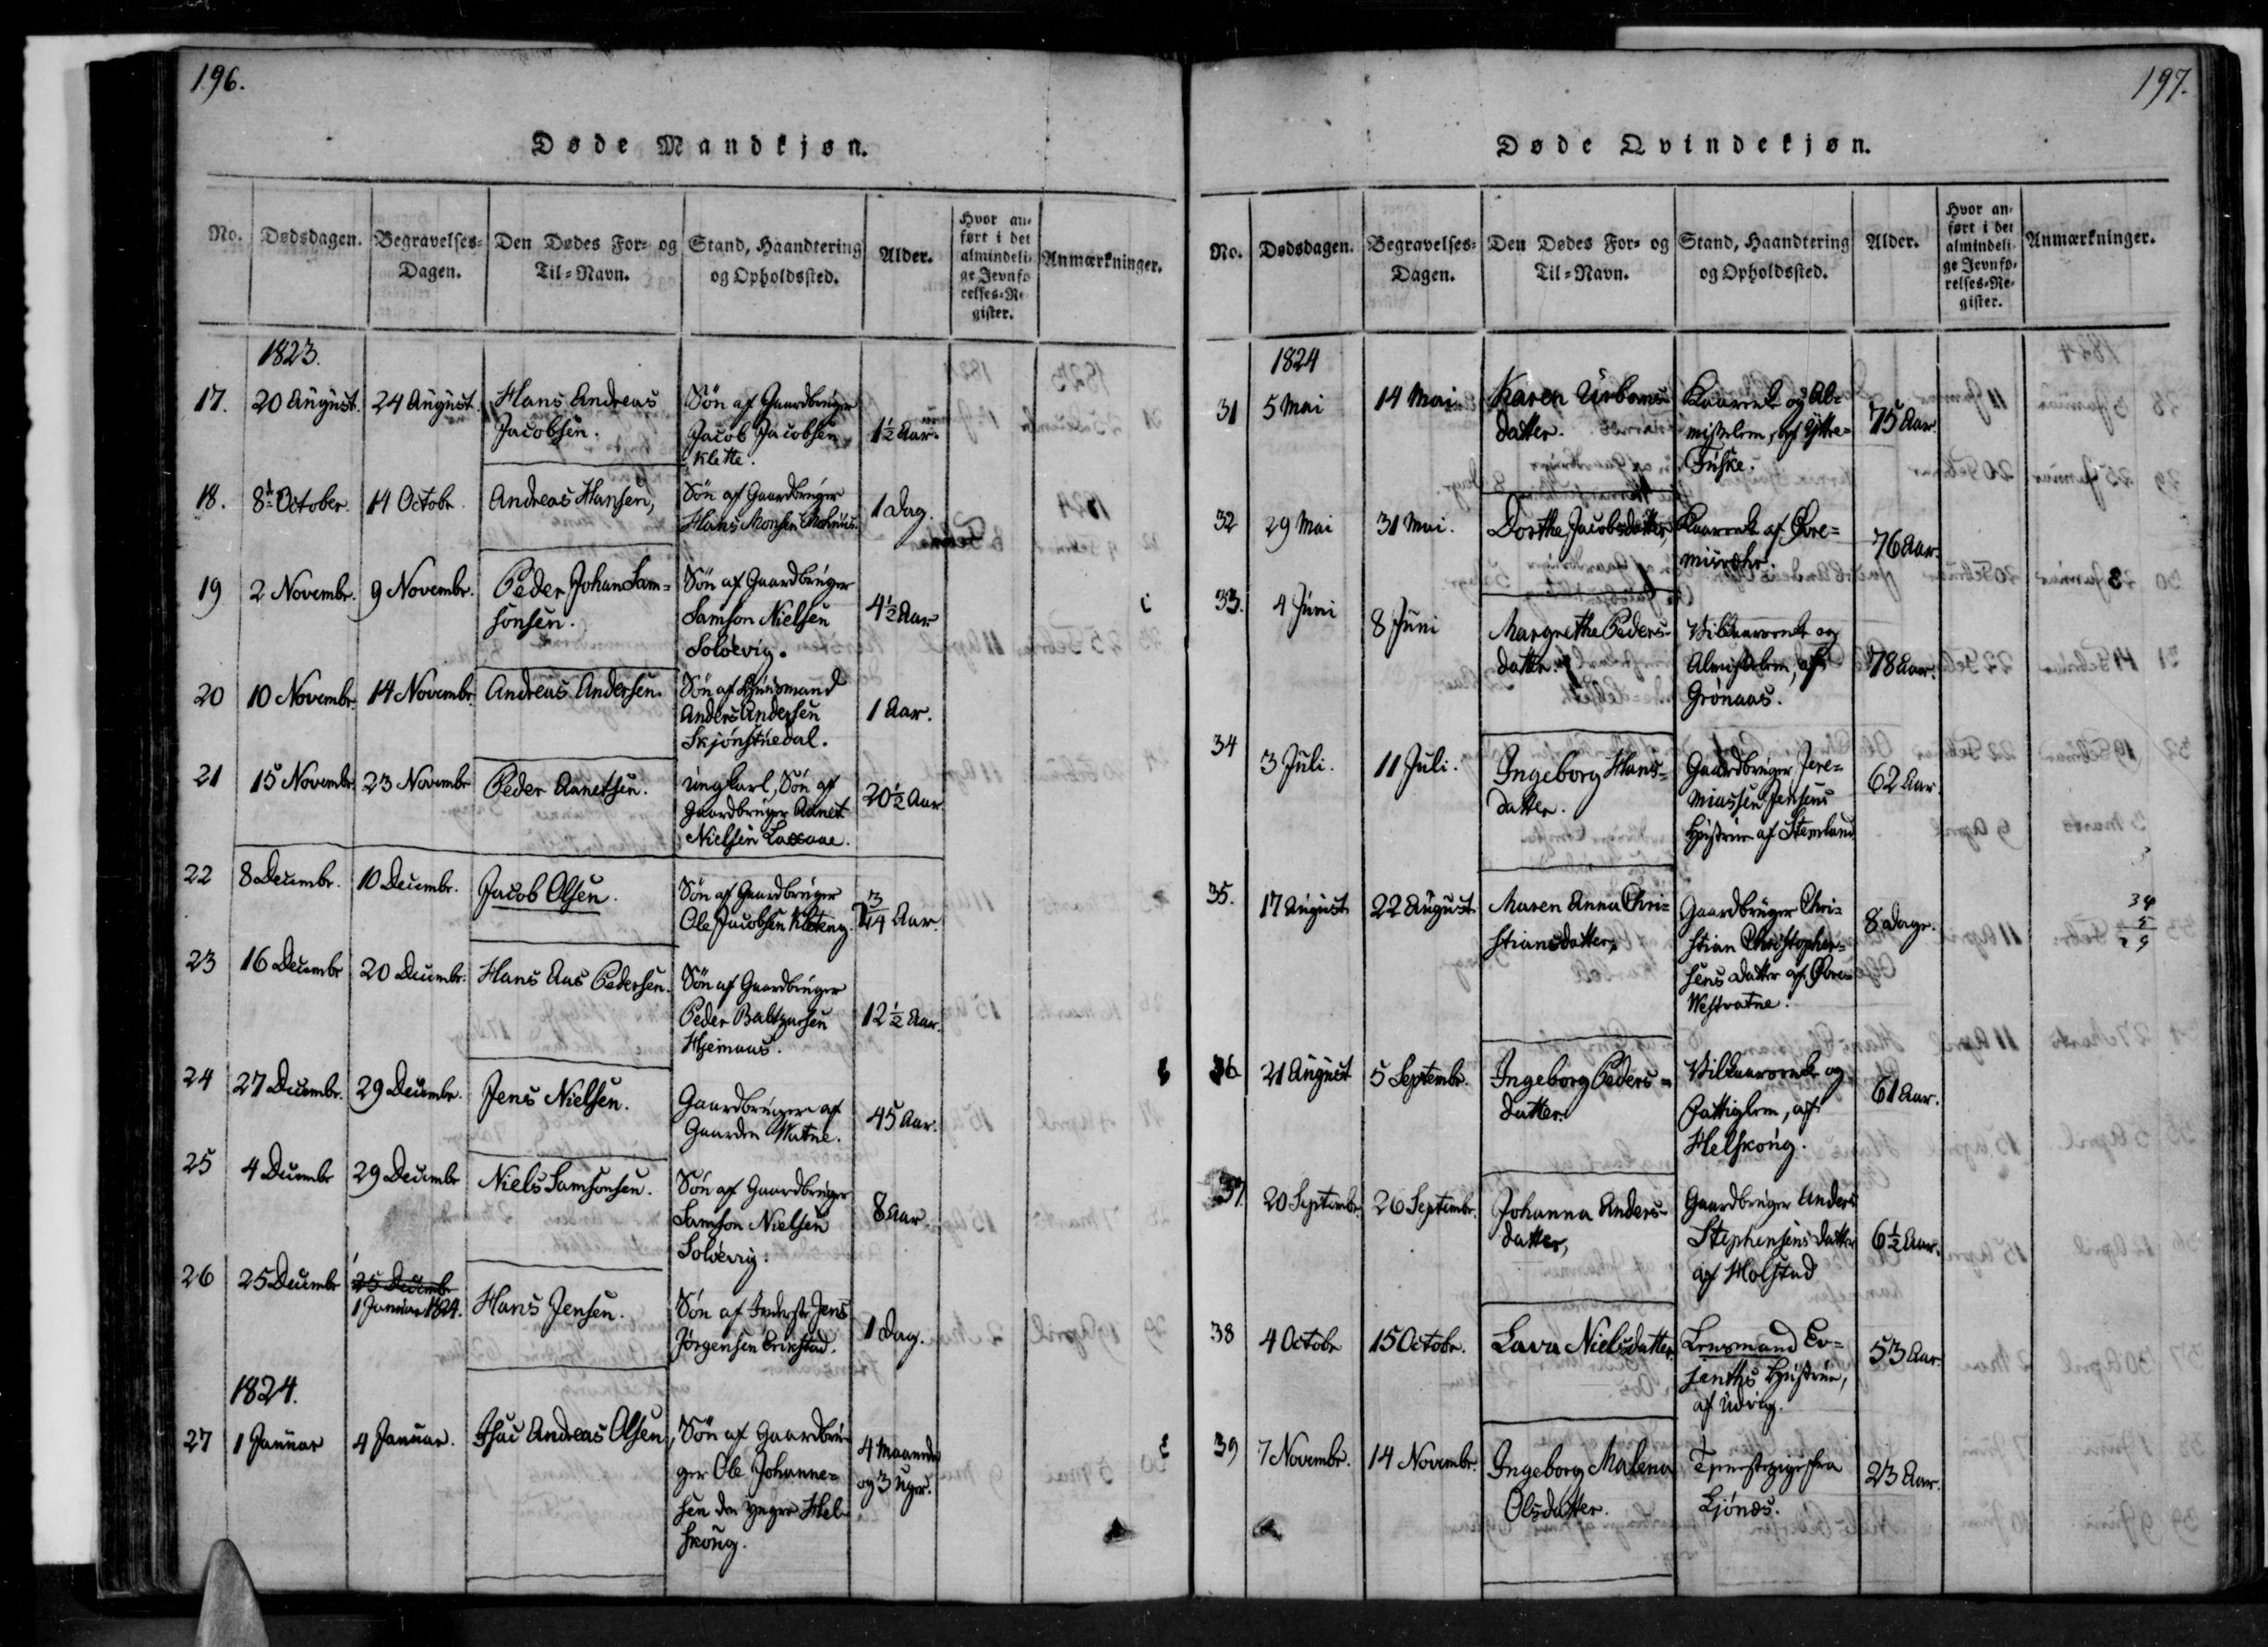 196.
Døde Mandkjøn.
No.
Dødsdagen.
Begravelses-
Dagen.
Den Dødes For- og
Til-Navn.
Stand, Haandtering
og Opholdssted.
Alder.
Hvor an-
ført i det
almindeli-
ge Jevnfø-
relses-Re-
gister.
Anmærkninger.
1823.
17.
20 August.
24 August
Hans Andreas
Jacobsen.
Søn af Gaardbruger
Jacob Jacobsen
Klette.
1½ Aar.
18.
8de October.
14 Octobr.
Andreas Hansen,
Søn af Gaardbruger
Hans Monsen
1 Dag.
19
2 Novembr.
9 Novembr.
Peder Johan Sam-
sonsen.
Søn af Gaardbruger
Samson Nielsen
Soløevig.
4½ Aar
20
10 Novembr.
14 Novembr.
Andreas Andersen.
Søn af Huusmand
Anders Andersen
Skjønstuedal.
1 Aar.
21
15 Novembr
23 Novembr
Peder Aanetsen.
Ungkarl, Søn af
Gaardbruger Aanet
Nielsen Laxaae.
20½ Aar.
22
8 Decembr.
10 Decembr.
Jacob Olsen.
Søn af Gaardbruger
Ole Jacobsen Kleteng.
3/14 Aar.
23
16 Decembr
20 Decembr.
Hans Aas Pedersen.
Søn af Gaardbruger
Peder Baltzarsen
Hjemaas.
12½ Aar.
24
27 Decembr.
29 Decembr.
Jens Nielsen.
Gaardbruger af
Gaarden Vatne.
45 Aar.
25
4 Decembr
29 Decembr
Niels Samsonsen.
Søn af Gaardbruger
Samson Nielsen
Soløevig.
8 Aar.
26
25 Decembr
25 Decembr
1 Januar 1824.
Hans Jensen.
Søn af Inderste Jens
Jørgensen Erikstad.
1 Dag.
1824.
27
1 Januar
4 Januar.
Isac Andreas Olsen,
Søn af Gaardbru-
ger Ole Johanne-
sen den yngre Hel-
skoug.
4 Maaneder
og 3 Uger.
197.
Døde Qvindekjøn.
No.
Dødsdagen.
Begravelses-
Dagen.
Den Dødes For- og
Til-Navn.
Stand, Haandtering
og Opholdssted.
Alder.
Hvor an-
ført i det
almindeli-
ge Jevnfø-
relses-Re-
gister.
Anmærkninger.
1824
31
5 Mai
14 Mai
Karen Urbans-
datter.
Kaarenk og Al-
mislem, af Yttre-
Fuske.
75 Aar.
32
29 Mai
31 Mai.
Dorthe Jacobsdatter,
Kaarenk af Øvre-
76 Aar.
33.
4 Juni
8 Juni
Margrethe Peders-
datter.
Vilkaarsenk og
Almislem, af
Grønaas.
78 Aar.
34
3 Juli.
11 Juli.
Ingeborg Hans-
datter.
Gaardbruger Jere-
miassen Jensens
Hustrue af Stemland
62 Aar.
35.
17 August
22 August
Maren Anna Chri-
stiansdatter,
Gaardbruger Chri-
stian Christopher-
sens Datter af Øvre-
Westvatne.
8 Dage.
34
5
29
36
21 August
5 Septembr.
Ingeborg Peders-
datter.
Vilkaarsenk og
Fattiglem, af
Helskoug.
61 Aar.
37.
20 Septembr.
26 Septembr.
Johanna Anders-
datter,
Gaardbruger Anders
Stephensens Datter
af Molstad
6½ Aar.
38
4 Octobr
15 Octobr.
Lava Nielsdatter.
Lensmand Ev-
jenths Hustrue,
af Udvig.
53 Aar.
39
7 Novembr.
14 Novembr.
Ingeborg Malena
Olsdatter.
Tjenestepige fra
Ljønæs.
23 Aar.